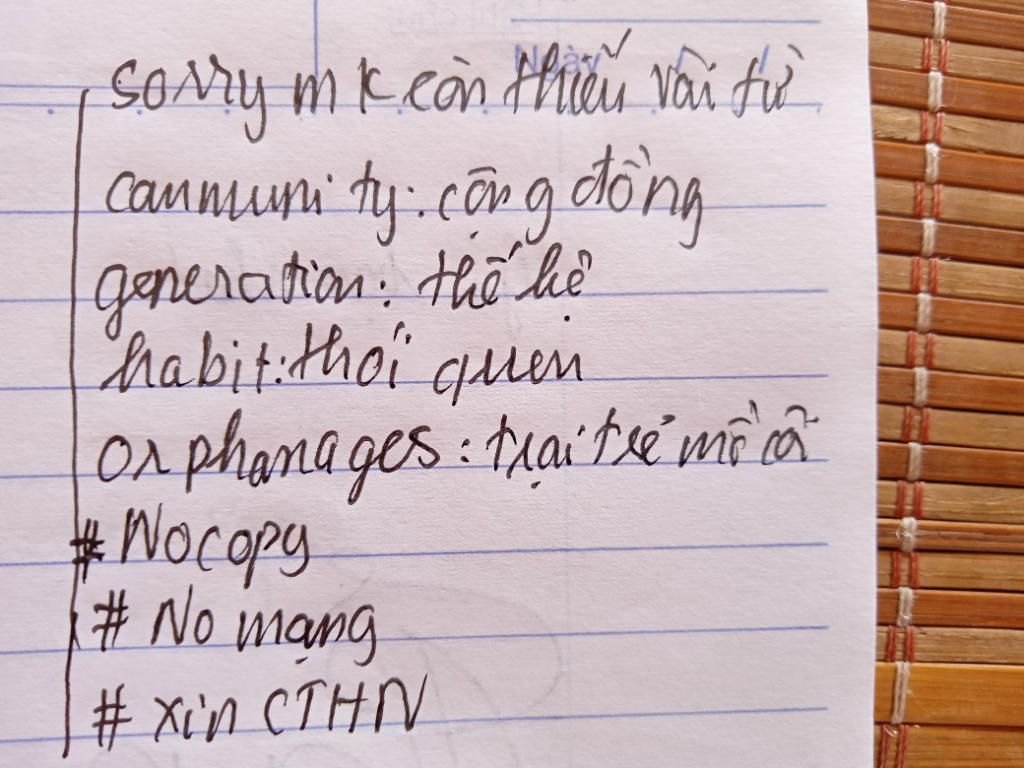 Ngày
sorry mk còn thiếu vài từ
canmunity: cộng đồng
generation: thế hệ
habit: thói quen
orphanages: trại trẻ mồ côi
# No copy
# No mạng
# xin CTHN